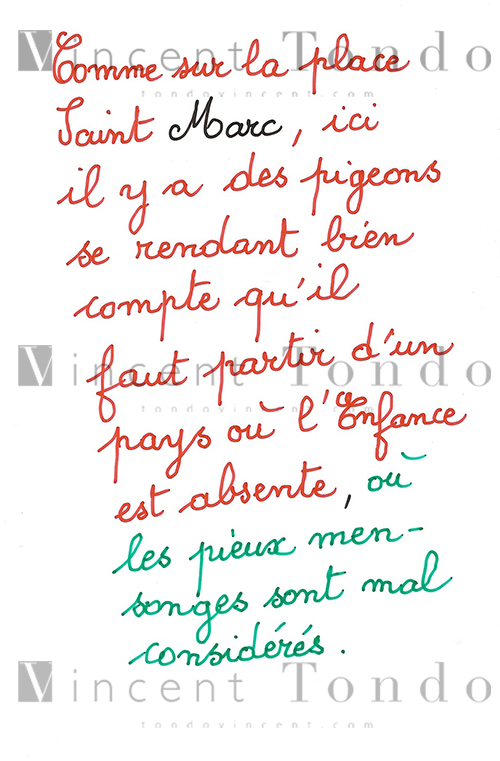 Vincent Tondo
tondovincent.com
Comme sur la place
Saint Marc, ici
il y a des pigeons
se rendant bien
compte qu'il
faut partir d'un
Vincent Tondo
tondovincent.com
pays où l'Enfance
est absente, où
les pieux men-
songes sont mal
considérés.
Vincent Tondo
tondovincent.com